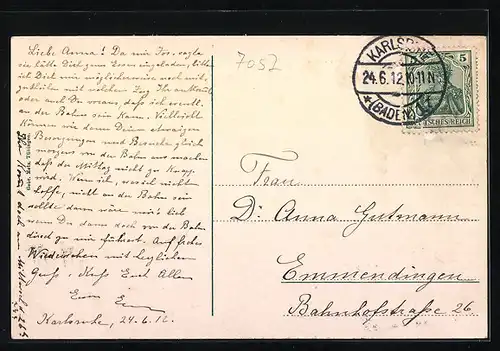 Liebe Anna! Da mir Tos. sagte
sie hätte Dich zum Essen eingeladen, bitte
ich Dich mir möglicherweise noch mit-
zuteilen mit welchem Zug Ihr ankommt
oder auch Du voraus, daß ich event.
an der Bahn sein kann. Vielleicht
können wir dann Deine etwaigen
Besorgungen und Besuche gleich
morgens von der Bahn aus machen
daß der Mittag nicht zu knapp
wird. Wenn ich, was ich nicht
hoffe, nicht an der Bahn sein
sollte dann wäre mir's lieb
wenn Du dann doch von der Bahn
direct zu mir führest. Auf frohes
Wiedersehen mit herzlichem
Gruß & Kuß Euch Allen
Eure
Karlsruhe, 24.6.12.
7057
KARLSRUHE
24.6.12.10-11N
(BADEN)
5
DEUTSCHES REICH
Frau
Dr. Anna Gutmann
Emmendingen
Bahnhofstraße 26.